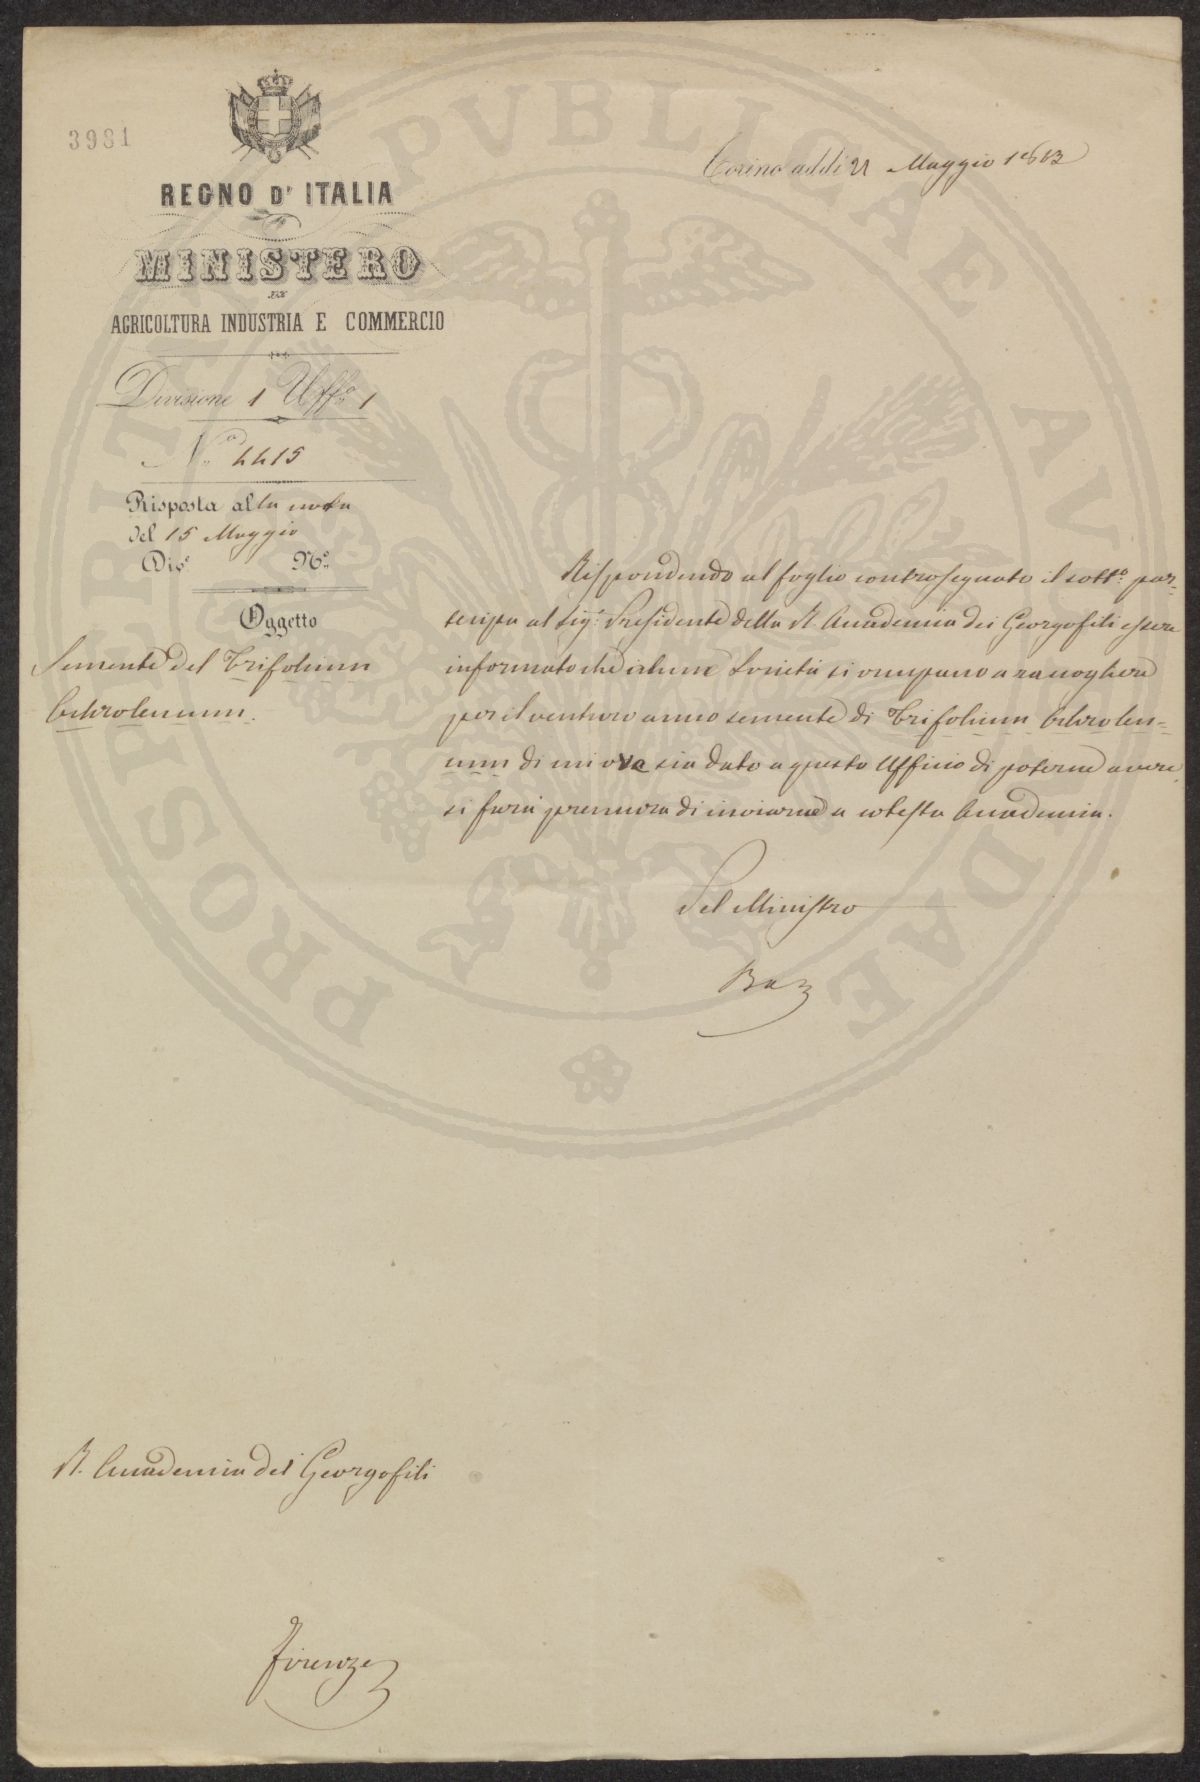 3981
REGNO D' ITALIA
MINISTERO
DI
AGRICOLTURA INDUSTRIA E COMMERCIO
Divisione 1 Uff.o 1
N.o 4415
Risposta alla nota
del 15 Maggio
Div.e N.o
Oggetto
Semente del Trifolium
Torino addi 21 Maggio 1863
Rispondendo al foglio controsegnato il sott.o par-
tecipa al Sig.r Presidente della R. Accademia dei Georgofili essere
informato che alcune Società si occupano a raccogliere
per il venturo anno semente di Trifolium
di cui ove sia dato a questo Ufficio di poterne avere,
si farà premura di inviarne a cotesta Accademia.
Pel Ministro
R. Accademia dei Georgofili
Firenze
PROSPERITATI PVBLICAE AVGENDAE